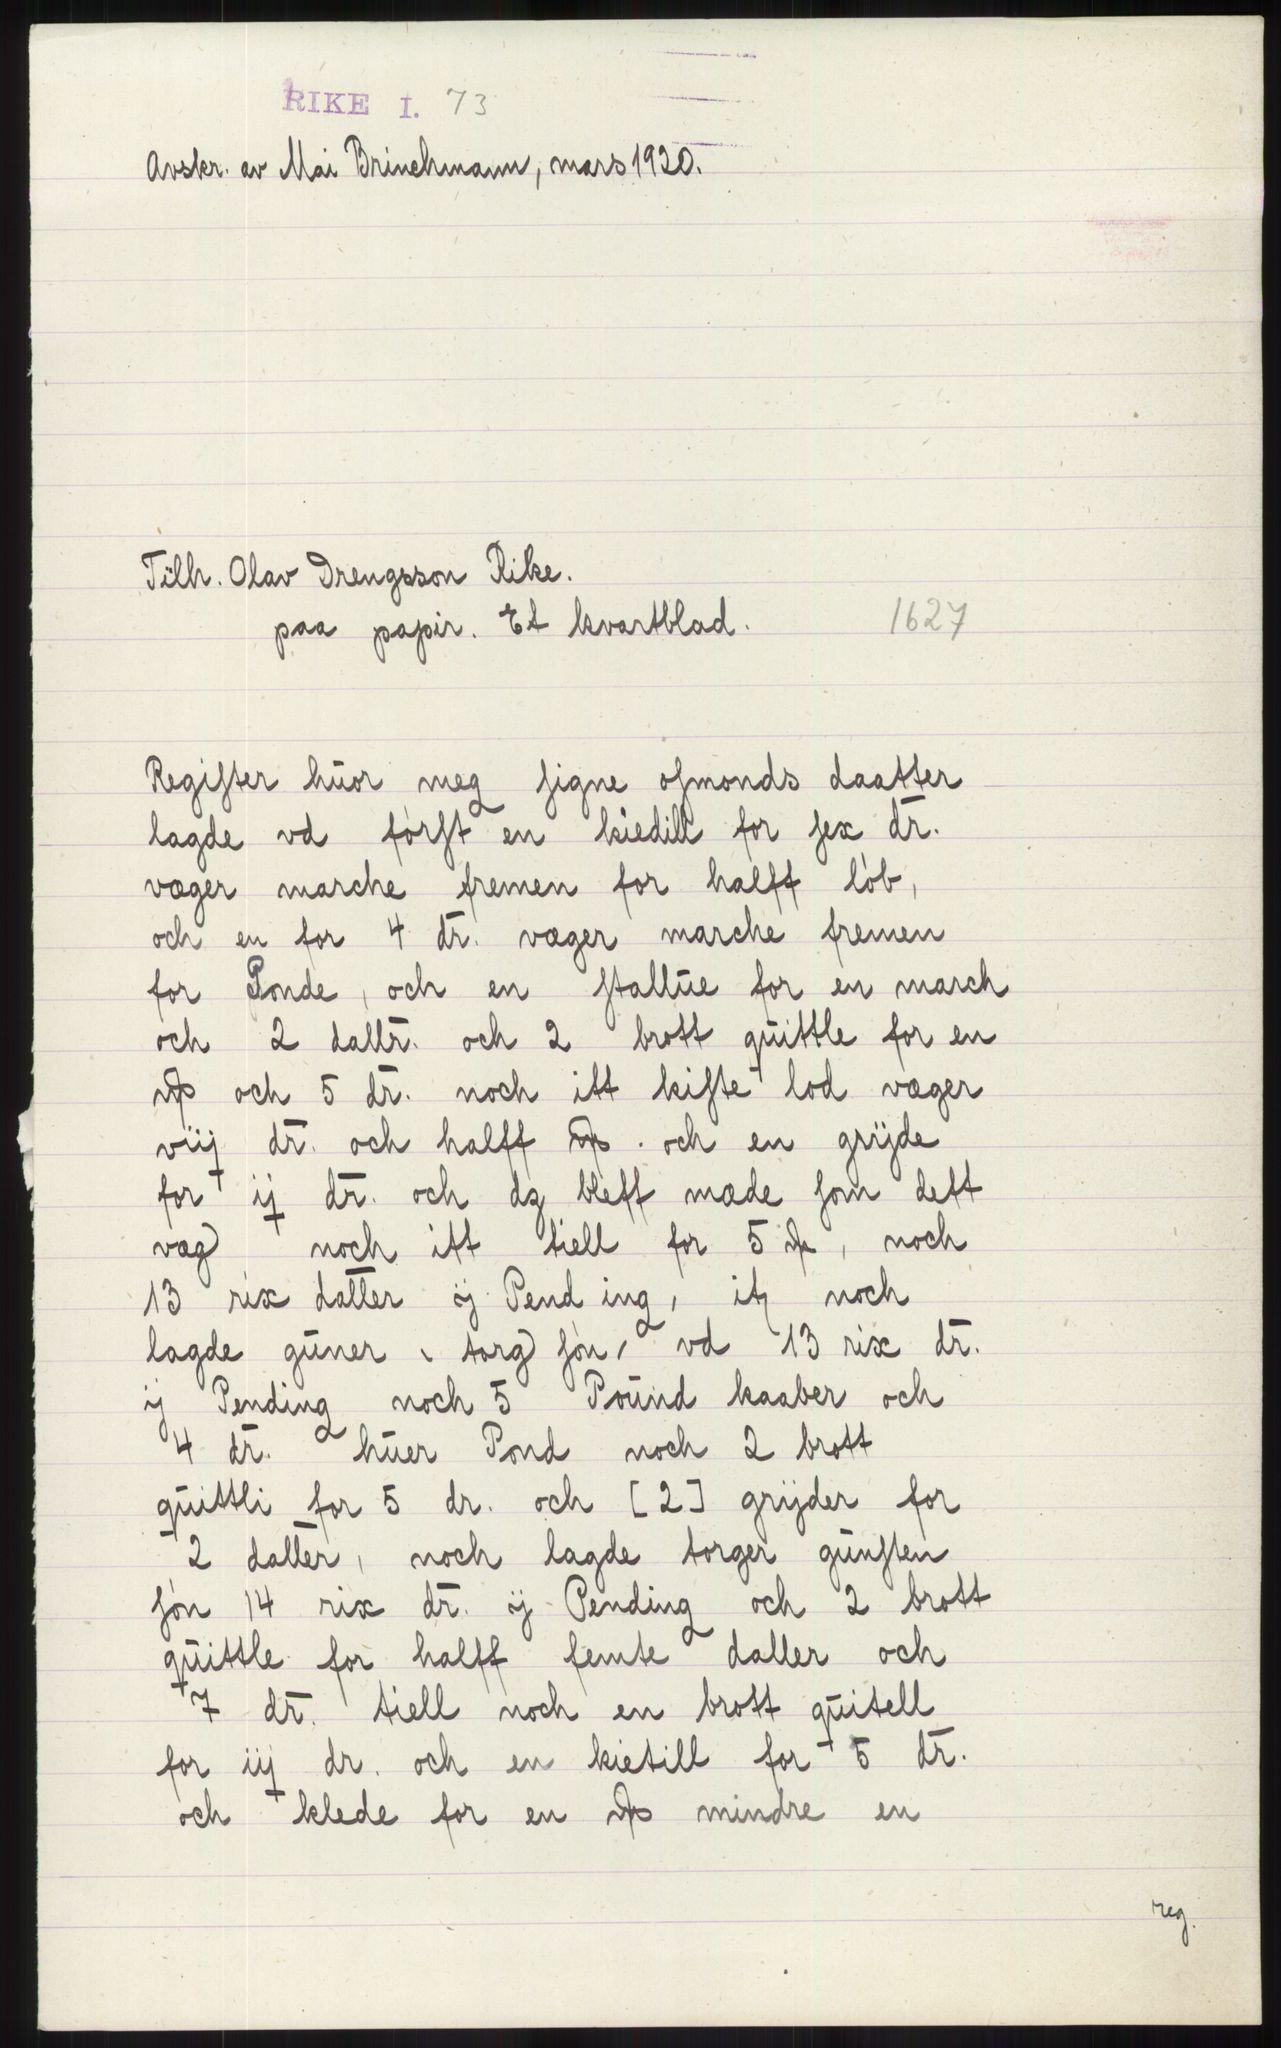 RIKE I. 73
Avskr. av Mai Brinchmann, mars 1920.
Tilh. Olav Drengsson Rike.
paa papir. Et kvartblad. 1627
Regiſter hŭor meg ſigne oſmonds daatter
lagde vd først en kiedill for ſex dr̄.
væger marche fremen for halff löb,
och en for 4 dr̄. væger marche fremen
for Ponde, och en ſtallŭe for en march
och 2 dallr̄. och 2 brott qŭittle for en
och 5 dr̄. noch itt kiſte lod væger
viij dr̄. och halff . och en grÿde
for ij dr̄. och dꝫ bleff mæde ſom deft
væg noch itt tiell for 5 , noch
13 rix daller ij Pend ing, itꝫ noch
lagde gŭner torg ſön, vd 13 rix dr̄.
ij Pending noch 5 Poŭnd kaaber och
4 dr̄. hŭer Pond noch 2 brott
qŭittli for 5 dr. och [2] grÿder for
2 daller, noch lagde torger gŭnſten
ſön 14 rix dr̄. ij Pending och 2 brott
qŭittle for halff femte daller och
7 dr̄. tiell noch en brott qŭitell
for iij dr. och en kietill for 5 dr̄.
och klede for en mindre en
reg.